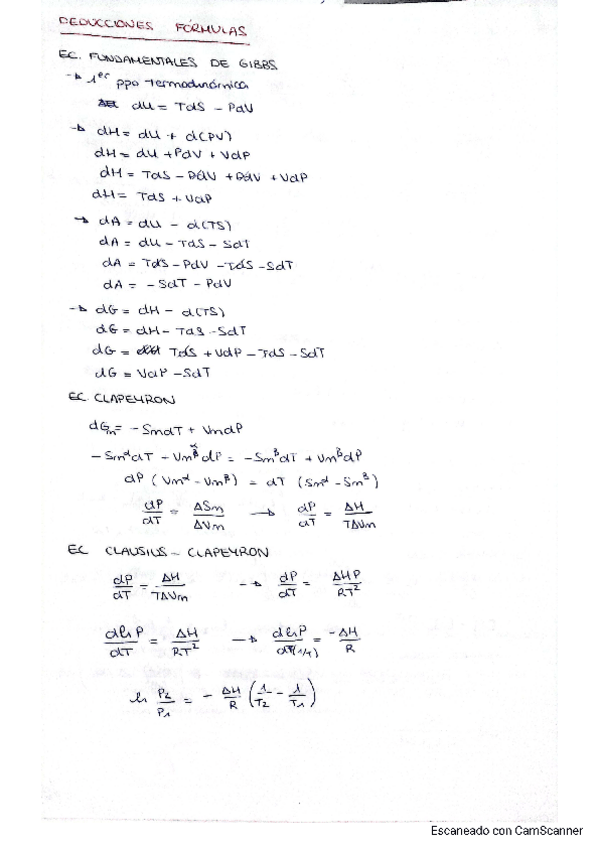 DEDUCCIONES FÓRMULAS
EC. FUNDAMENTALES DE GIBBS
→ 1er ppo termodinámica
dU = TdS - PdV
→ dH = dU + d(PV)
dH = dU + PdV + VdP
dH = TdS - PdV + PdV + VdP
dH = TdS + VdP
→ dA = dU - d(TS)
dA = dU - TdS - SdT
dA = TdS - PdV - TdS - SdT
dA = - SdT - PdV
→ dG = dH - d(TS)
dG = dH - TdS - SdT
dG = TdS + VdP - TdS - SdT
dG = VdP - SdT
EC CLAPEYRON
dGm = - SmdT + VmdP
- Smα dT - Vmα dP = - Smβ dT + Vmβ dP
dP (Vmα - Vmβ) = dT (Smα - Smβ)
dP/dT = ΔSm/ΔVm → dP/dT = ΔH/TΔVm
EC CLAUSIUS - CLAPEYRON
dP/dT = ΔH/TΔVm → dP/dT = ΔHP/RT²
dlnP/dT = ΔH/RT² → dlnP/d(1/T) = -ΔH/R
ln P2/P1 = - ΔH/R (1/T2 - 1/T1)
Escaneado con CamScanner